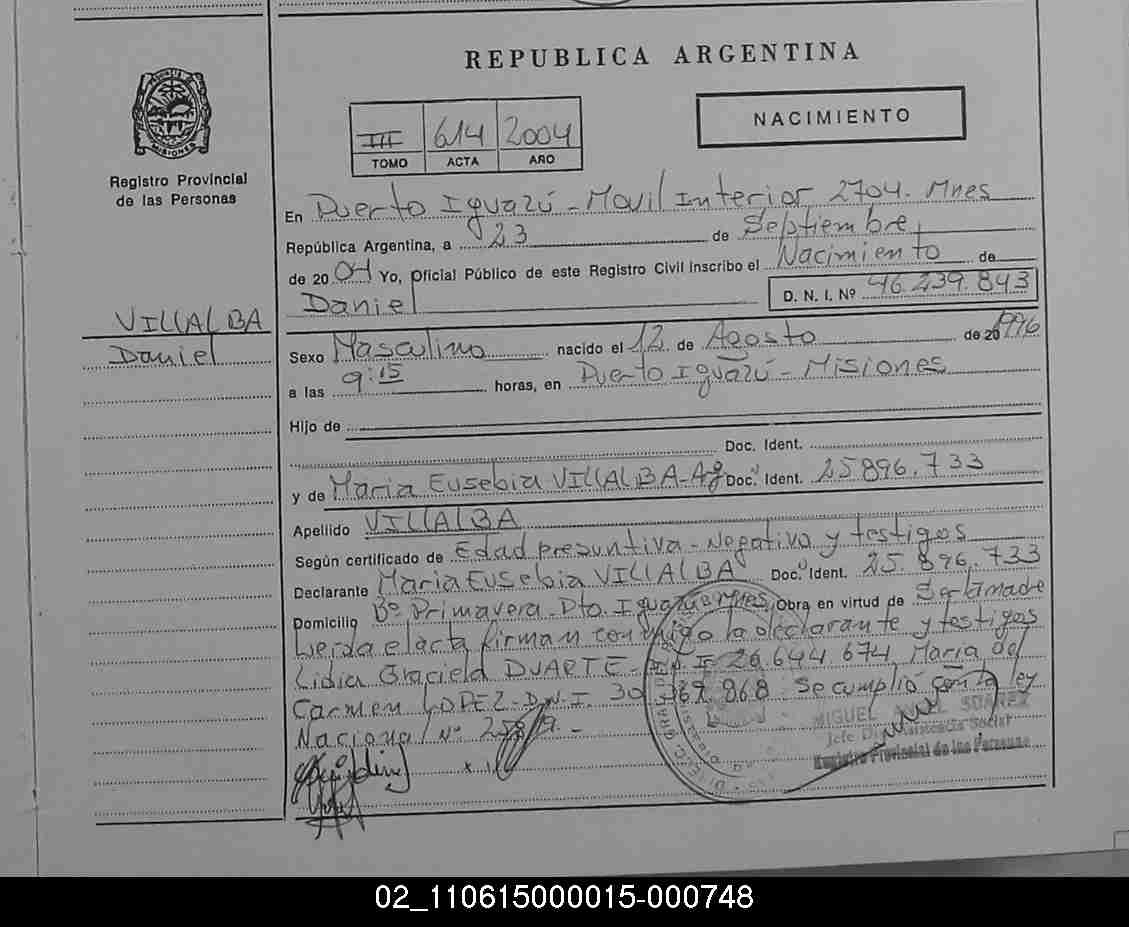 REPUBLICA ARGENTINA
PROVINCIA DE MISIONES
Registro Provincial
de las Personas
III 614 2004
TOMO ACTA AÑO
NACIMIENTO
En Puerto Iguazú - Movil Interior 2704. Mnes
República Argentina, a 23 de Septiembre,
de 2004 Yo, Oficial Público de este Registro Civil inscribo el Nacimiento de
Daniel D. N. I. Nº 46.239.843
VILLALBA
Daniel
Sexo Masculino nacido el 12 de Agosto de 20 1996
a las 9:15 horas, en Puerto Iguazú - Misiones
Hijo de
Doc. Ident.
y de Maria Eusebia VILLALBA - Doc. Ident. 25896.733
Apellido VILLALBA
Según certificado de Edad presuntiva - Negativa y testigos
Declarante Maria Eusebia VILLALBA Doc. Ident. 25.896.733
Domicilio Bº Primavera - Dto. Iguazú Mnes, Obra en virtud de Ser la madre
Leida el acta firman conmigo la declarante y testigos
Lidia Graciela DUARTE - D.N.I. 26.644.674, Maria del
Carmen LOPEZ - D.N.I. 30.369.868. Se cumplió con la ley
Nacional Nº
MIGUEL SUAREZ
Jefe Asistencia Social
Registro Provincial de las Personas
02_110615000015-000748